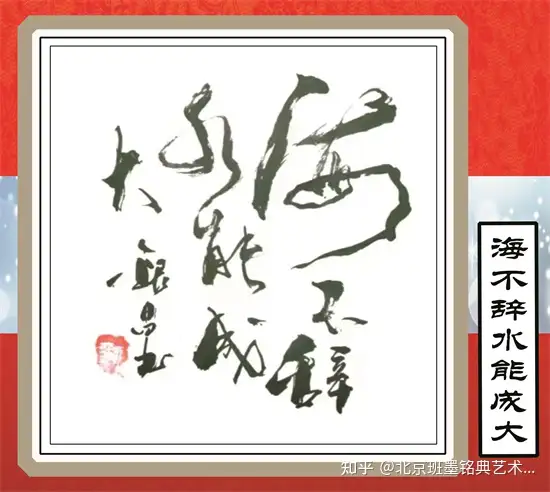 海不辞
水能成
大
银昌书
海不辞水能成大
知乎 @北京班墨铭典艺术...